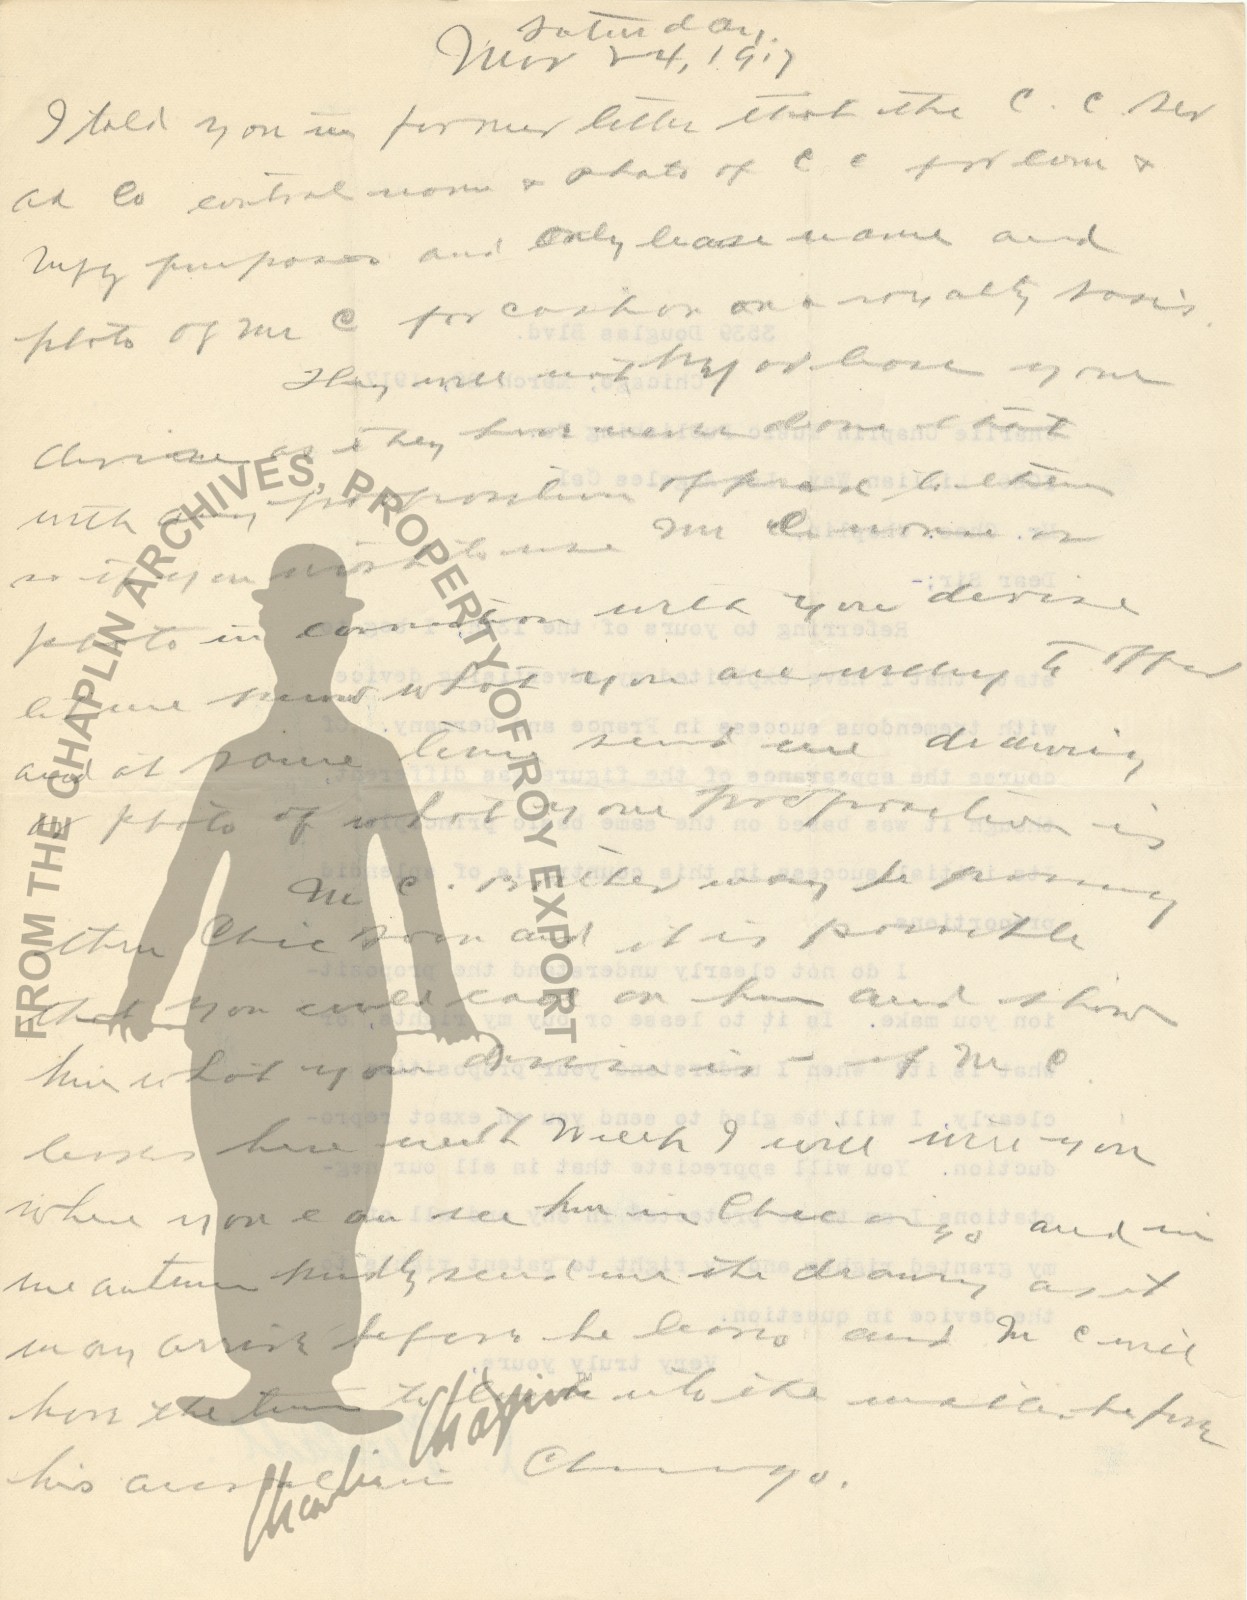 Saturday.
Mar 24, 1917
I told you in former letter that the C. C
Ad Co control name & photo of C C for com &
Mfg purposes and only lease name and
photo of Mr C for cash or on a royalty basis.
They will not buy or lease your
devise as they have never done that
with any proposition offered to them
so if you wish to use Mr C name or
photo in connection with your devise
let me know what you are willing to offer
and at same time send me drawing
or photo of what your proposition is
Mr C. Brother may be passing
thru Chic soon and it is possible
that you could call on him and show
him what your devise is - if Mr C
leaves here next week I will wire you
where you can see him in Chicago and in
meantime kindly send me the drawing as it
may arrive before he leaves and Mr C will
have the time to look into the matter before
his arrival in Chicago.
FROM THE CHAPLIN ARCHIVES, PROPERTY OF ROY EXPORT
Charlie Chaplin
TM
3539 Douglas Blvd.
Chicago, March
Charlie Chaplin Music Publishing
Dear Sir;-
Referring to yours of the
with tremendous success in France and Germany. Of
course the appearance of the figure was different,
though it was based on the same basic principle
success in this country is of splendid
proportions.
I do not clearly understand the proposit-
ion you make. Is it to lease or buy my rights, or
what is it? When I understand your proposition
clearly, I will be glad to send you an exact repro-
duction. You will appreciate that in all our neg-
otiations I am to be protected in any and all of
my granted rights and right to patent rights to
the device in question.
Very truly yours